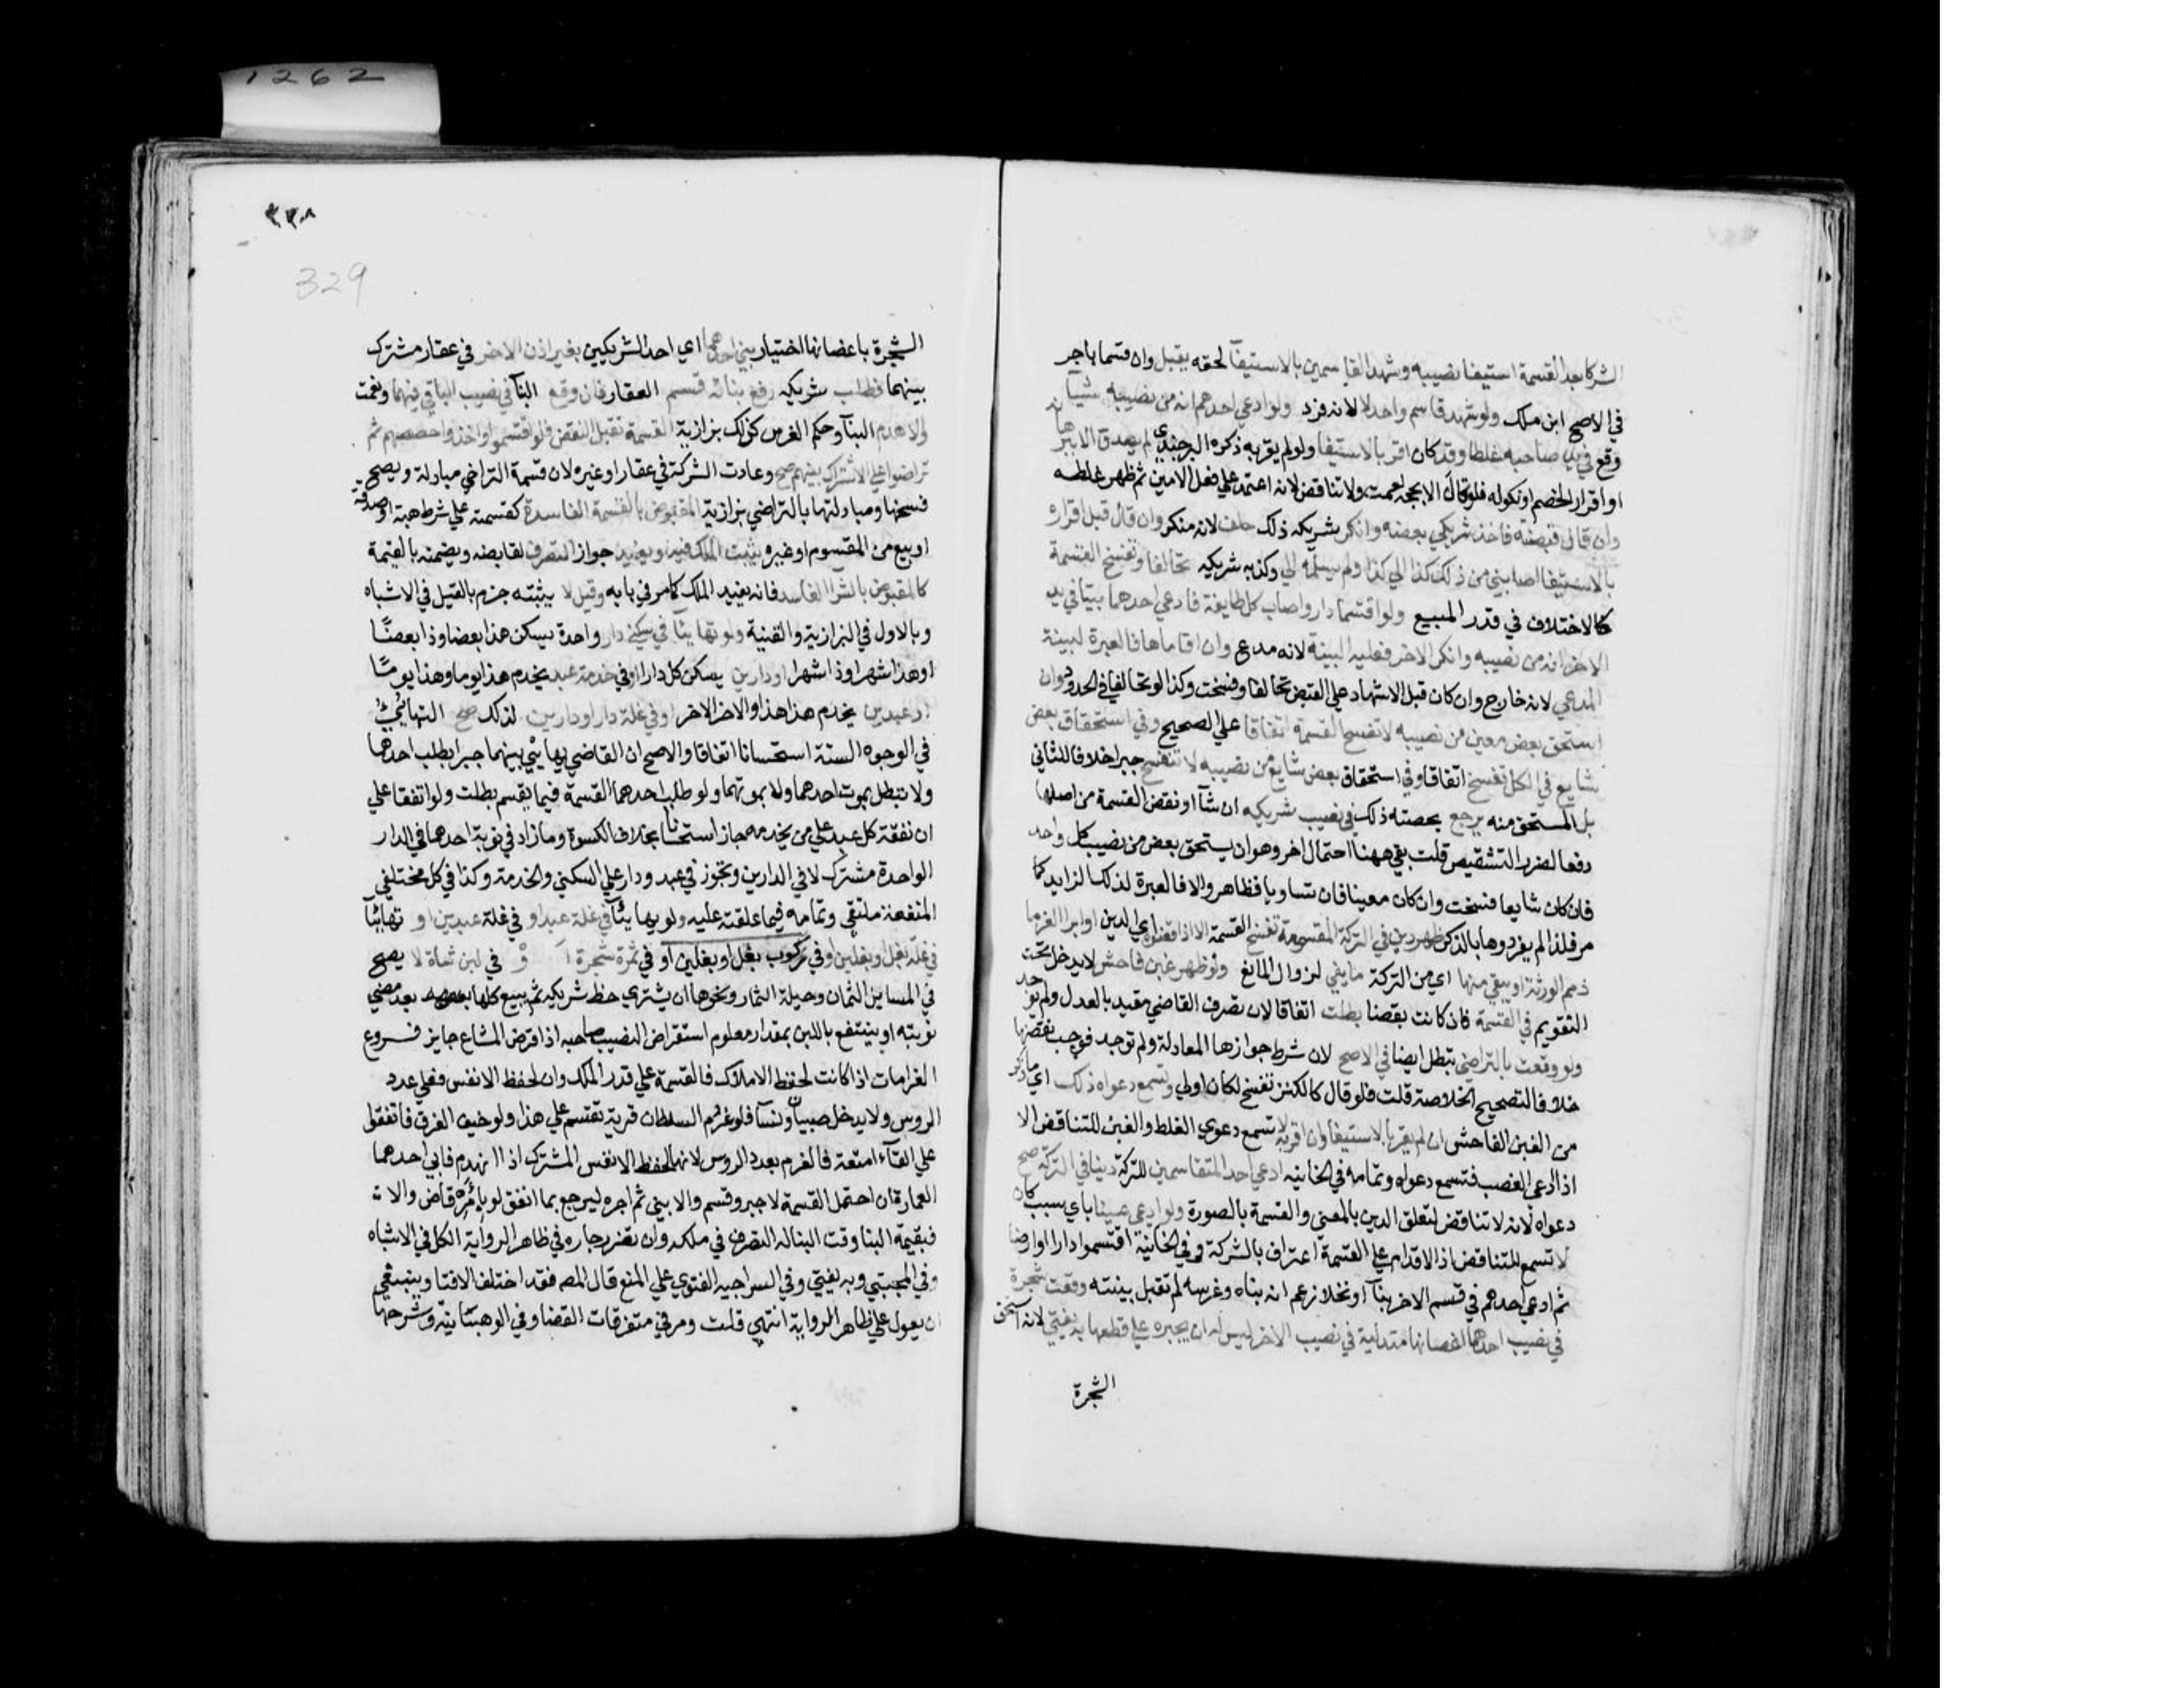 1262
الشركا بعد القسمة استيفا نصيبه وشهد القاسمين بالاستيفآ لحقه يقبل وان قسما باجر
في الاصح ابن ملك ولو شهد قاسم واحد لا لانه فرد ولو ادعي احدهم انه من نصيبه شيأ
وقع في يد صاحبه غلطا وقد كان اقر بالاستيفا ولو لم يقر به ذكره البرجندي لم يصدق الا ببرهان
او اقرار الخصم او نكوله فلو قال الا بحجة لعمت ولا تناقض لانه اعتمد علي فعل الامين ثم ظهر غلطه
وان قال قبضته فاخذ شريكي بعضه وانكر شريكه ذلك حلف لانه منكر وان قال قبل اقراره
بالاستيفا اصابني من ذلك كذا الي كذا ولم يسلمه الي وكذبه شريكه تحالفا وتفسخ القسمة
كالاختلاف في قدر المبيع ولو اقتسما دار واصاب كل طايفة فادعي احدهما بيتا في يد
الاخر انه من نصيبه وانكر الاخر فعليه البينة لانه مدع وان اقاماها فالعبرة لبينة
المدعي لانه خارج وان كان قبل الاشهاد علي القبض تحالفا وفسخت وكذا لو تحالفا في الحدود وان
استحق بعض معين من نصيبه لا تفسخ القسمة اتفاقا علي الصحيح وفي استحقاق بعض
شايع في الكل تفسخ اتفاقا وفي استحقاق بعض شايع من نصيبه لا تفسخ جبرا خلافا للثاني
بل المستحق منه يرجع بحصته ذلك في نصيب شريكه ان شآ او نقض القسمة من اصلها
دفعا لضرر التشقيص قلت بقي ههنا احتمال اخر وهو ان يستحق بعض من نصيب كل واحد
فان كان شايعا فسخت وان كان معينا فان تساويا فظاهر والا فالعبرة لذلك الزايد كما
مر فلذا لم يفردوها بالذكر ظهر دين في التركة المقسومة تفسخ القسمة الا اذا قضوه اي الدين او ابرا الغرما
ذمم الورثة او يبقي منها اي من التركة ما يفي لزوال المانع ولو ظهر غبن فاحش لا يدخل تحت
التقويم في القسمة فان كانت بقضا بطلت اتفاقا لان تصرف القاضي مقيد بالعدل ولم يوجد
ولو وقعت بالتراضي تبطل ايضا في الاصح لان شرط جوازها المعادلة ولم توجد فوجب نقضها
خلافا لتصحيح الخلاصة قلت فلو قال كالكنز تفسخ لكان اولي وتسمع دعواه ذلك اي ما ذكر
من الغبن الفاحش ان لم يقر بالاستيفا وان اقر به لا تسمع دعوي الغلط والغبن للتناقض الا
اذا ادعي الغصب فتسمع دعواه وتمامه في الخانيه ادعي احد المتقاسمين للتركة دينا في التركة صح
دعواه لانه لا تناقض لتعلق الدين بالمعني والقسمة بالصورة ولو ادعي عينا باي سبب كان
لا تسمع للتناقض اذ الاقدام علي القسمة اعتراف بالشركة وفي الخانية اقتسموا دارا او ارضا
ثم ادعي احدهم في قسم الاخر بنآ او نخلا زعم انه بناه وغرسه لم تقبل بينته وقعت شجرة
في نصيب احدهما اغصانها متدلية في نصيب الاخر ليس له ان يجبره علي قطعها به يفتي لانه استحق
الشجرة
٣٢٨
329
الشجرة باغصانها اختيار بني احدهما اي احد الشريكين بغير اذن الاخر في عقار مشترك
بينهما فطلب شريكه رفع بنائه قسم العقار فان وقع البنآ في نصيب الباني فبها ونعمت
والا هدم البنآ وحكم الغرس كذلك بزازية القسمة تقبل النقض فلو اقتسموا واخذوا حصصهم ثم
تراضوا علي الاشتراك بينهم صح وعادت الشركة في عقار او غيره لان قسمة التراضي مبادلة ويصح
فسخها ومبادلتها بالتراضي بزازية المقبوض بالقسمة الفاسدة كقسمته علي شرط هبة او صدقة
او بيع من المقسوم او غيره يثبت الملك فيه ويفيد جواز التصرف لقابضه ويضمنه بالقيمة
كالمقبوض بالشرا الفاسد فانه يفيد الملك كما مر في بابه وقيل لا يثبته جزم بالقيل في الاشباه
وبالاول في البزازية والقنية ولو تهايئا في سكني دار واحدة يسكن هذا بعضا وذا بعضًا
او هذا شهرا وذا اشهرا او دارين يسكن كل دارا او في خدمة عبد يخدم هذا يوما وهذا يومًا
او عبدين يخدم هذا هذا والاخر الاخر او في غلة دار او دارين لذلك صح التهايئ
في الوجوه الستة استحسانا اتفاقا والاصح ان القاضي يهايئ بينهما جبرا بطلب احدهما
ولا تبطل بموت احدهما ولا بموتهما ولو طلب احدهما القسمة فيما يقسم بطلت ولو اتفقا علي
ان نفقة كل عبد علي من يخدمه جاز استحسانا بخلاف الكسوة وما زاد في نوبة احدهما في الدار
الواحدة مشترك لا في الدارين وتجوز في عبد ودار علي السكني والخدمة وكذا في كل مختلفي
المنفعة ملتقي وتمامه فيما علقته عليه ولو تهايئآ في غلة عبد او في غلة عبدين او تهايئآ
في غلة بغل او بغلين او في ركوب بغل او بغلين او في ثمرة شجرة او في لبن شاة لا يصح
في المسايل الثمان وحيلة الثمار ونحوها ان يشتري حظ شريكه ثم يبيع كلها بعد مضي
نوبته او ينتفع باللبن بمقدار معلوم استقراض لنصيب صاحبه اذ قرض المشاع جايز فروع
الغرامات اذا كانت لحفظ الاملاك فالقسمة علي قدر الملك وان لحفظ الانفس فعلي عدد
الروس ولا يدخل صبيان ونسآ فلو غرم السلطان قرية تقتسم علي هذا ولو خيف الغرق فاتفقوا
علي القآء امتعة فالغرم بعدد الروس لانها لحفظ الانفس المشترك اذا انهدم فابي احدهما
العمارة ان احتمل القسمة لا جبر وقسم والا بني ثم اجره ليرجع بما انفق لو بامره قاض والا
فبقيمة البنا وقت البنا له التصرف في ملكه وان تضرر جاره في ظاهر الرواية الكل في الاشباه
وفي المجتبي وبه يفتي وفي السراجيه الفتوي علي المنع قال المصه فقد اختلف الافتا وينبغي
ان يعول علي ظاهر الرواية انتهي قلت ومر في متفرقات القضا وفي الوهبانية وشرحها